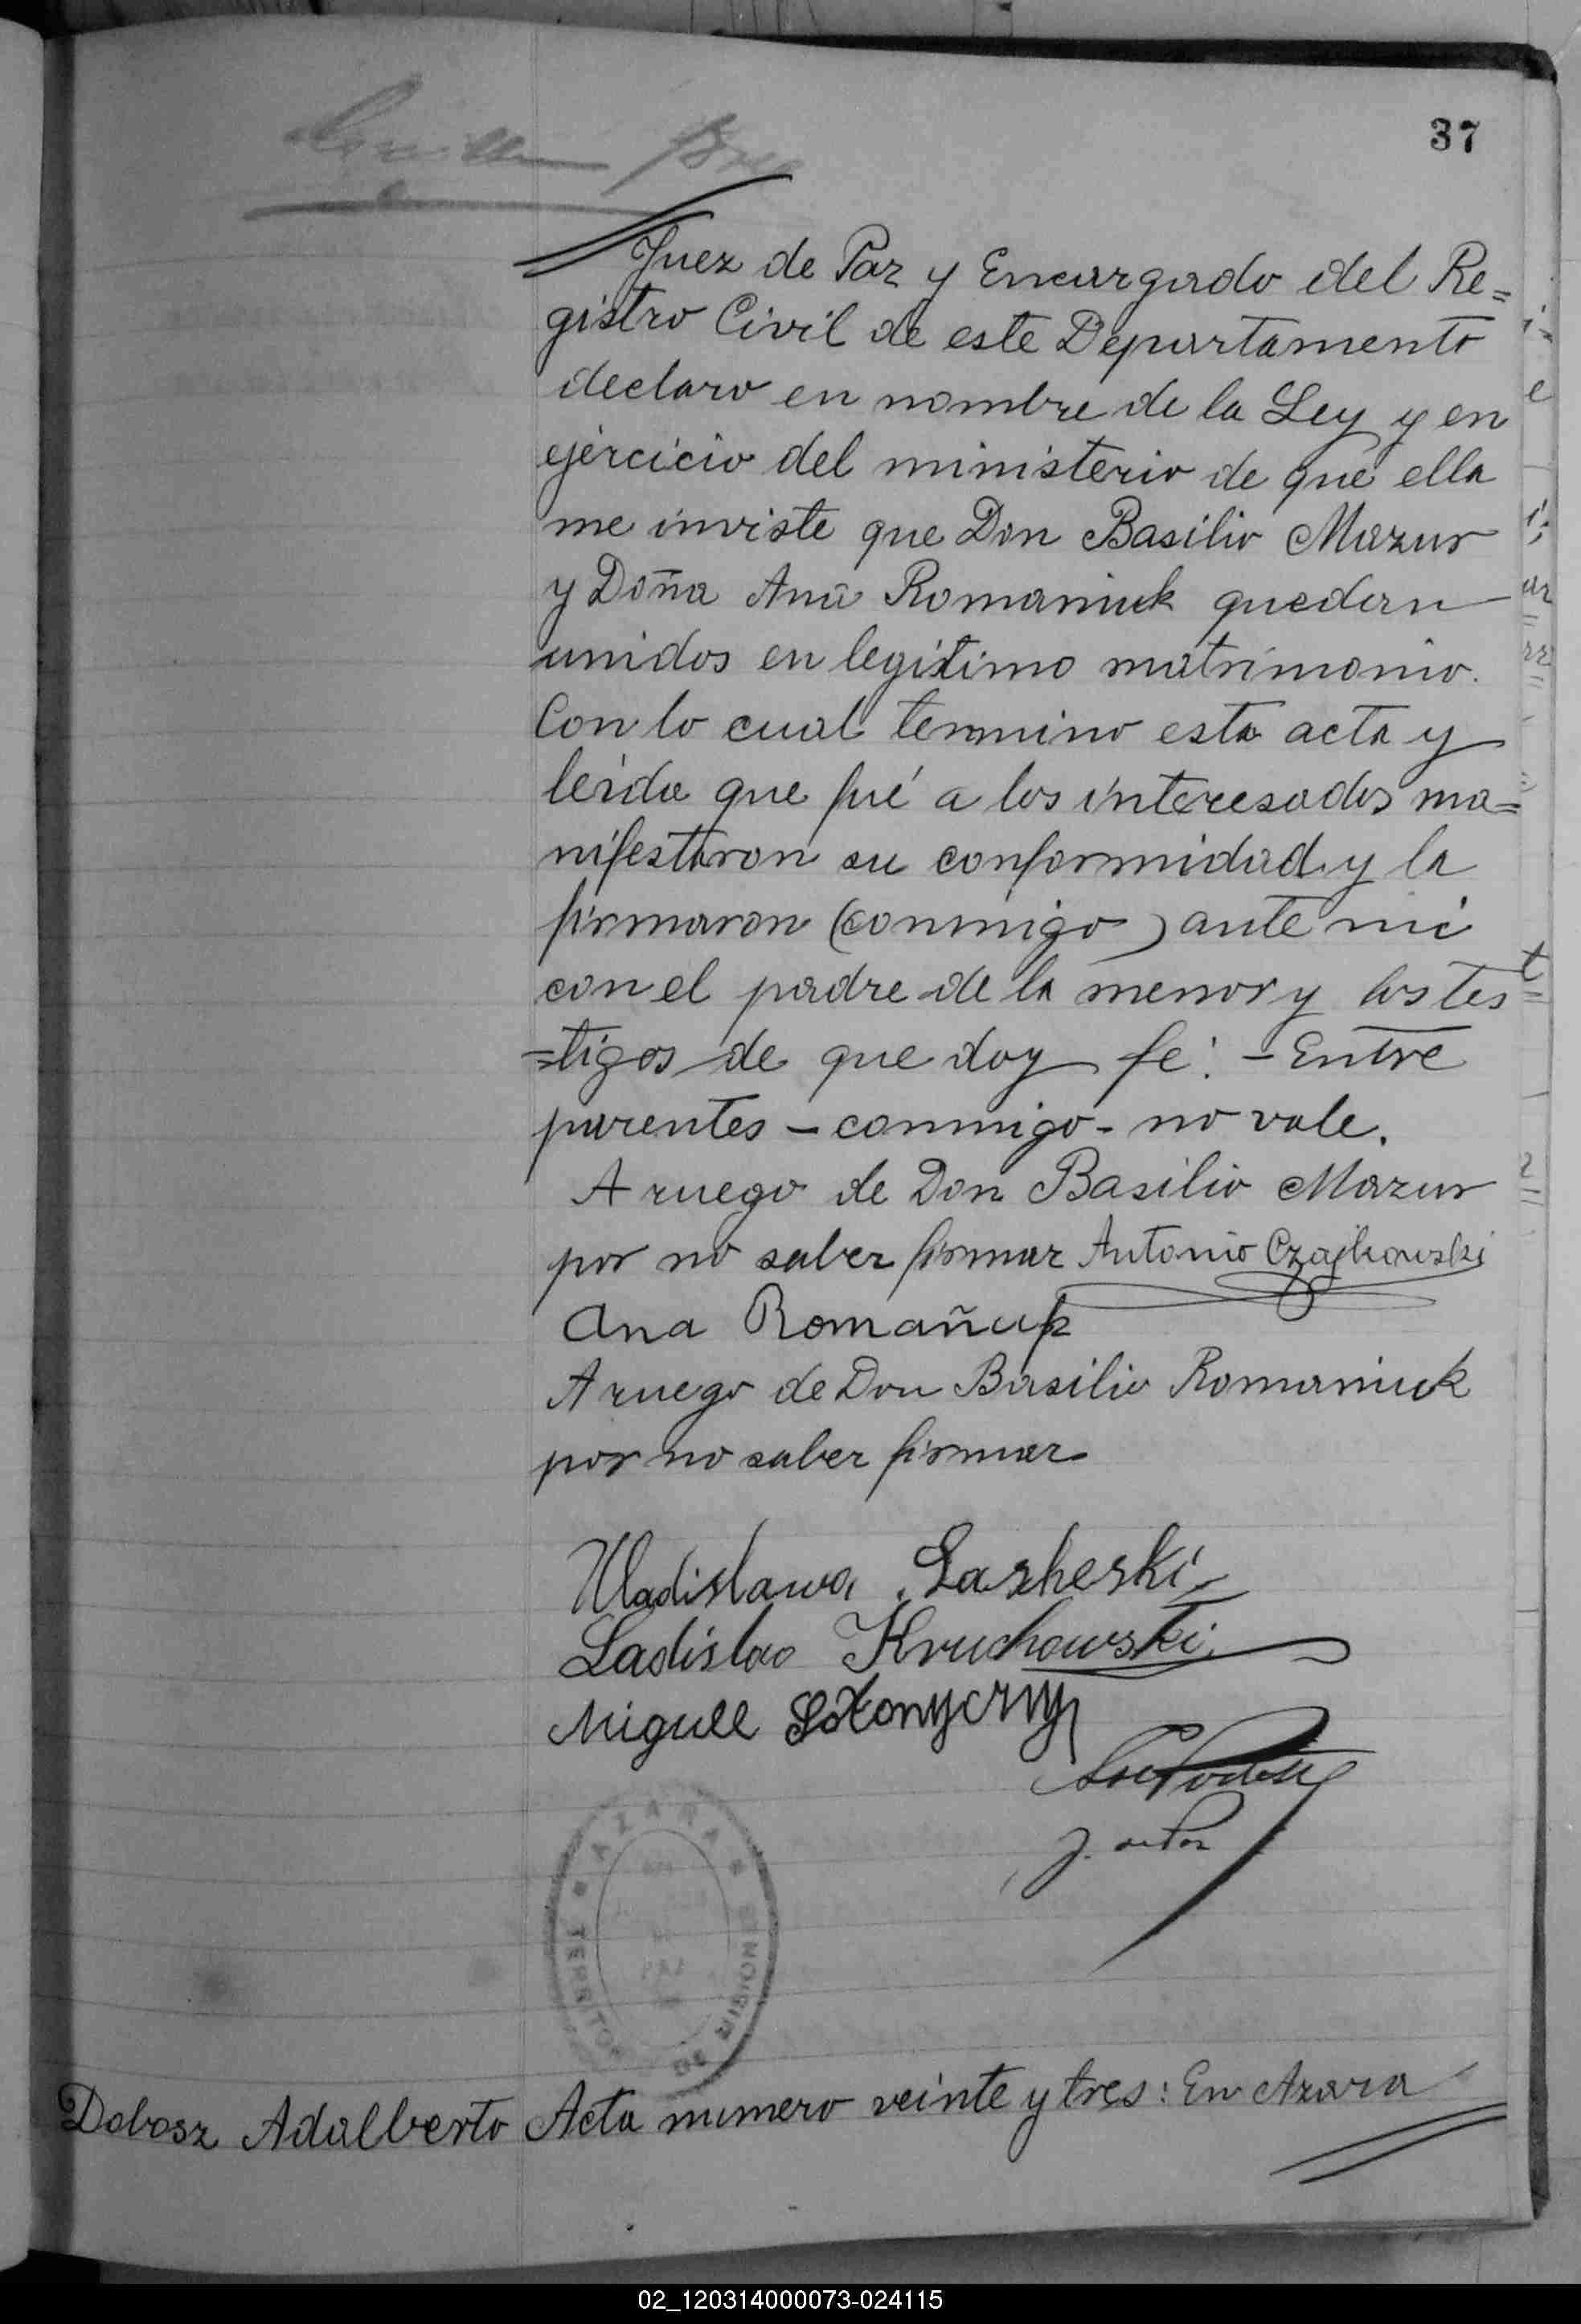 37
Juez de Paz y Encargado del Re=
gistro Civil de este Departamento
declaro en nombre de la Ley y en
ejercicio del ministerio de que ella
me inviste que Don Basilio Mazur
y Doña Ana Romaniuk quedan
unidos en legitimo matrimonio.
Con lo cual termino esta acta y
leida que fué a los interesados ma=
nifestaron su conformidad y la
firmaron (conmigo) ante mi
con el padre de la menor y los tes
=tigos de que doy fé: - Entre
parentes - conmigo - no vale.
A ruego de Don Basilio Mazur
por no saber firmar Antonio Czajkowski
Ana Romañuk
A ruego de Don Basilio Romaniuk
por no saber firmar
Wladislawa
Ladislao Kruchowski
Miguel
J. de Paz
AZARA
TERRITO
DE MISIONES
PAZ
Dobosz Adalberto Acta numero veinte y tres: En Azara
02_120314000073-024115